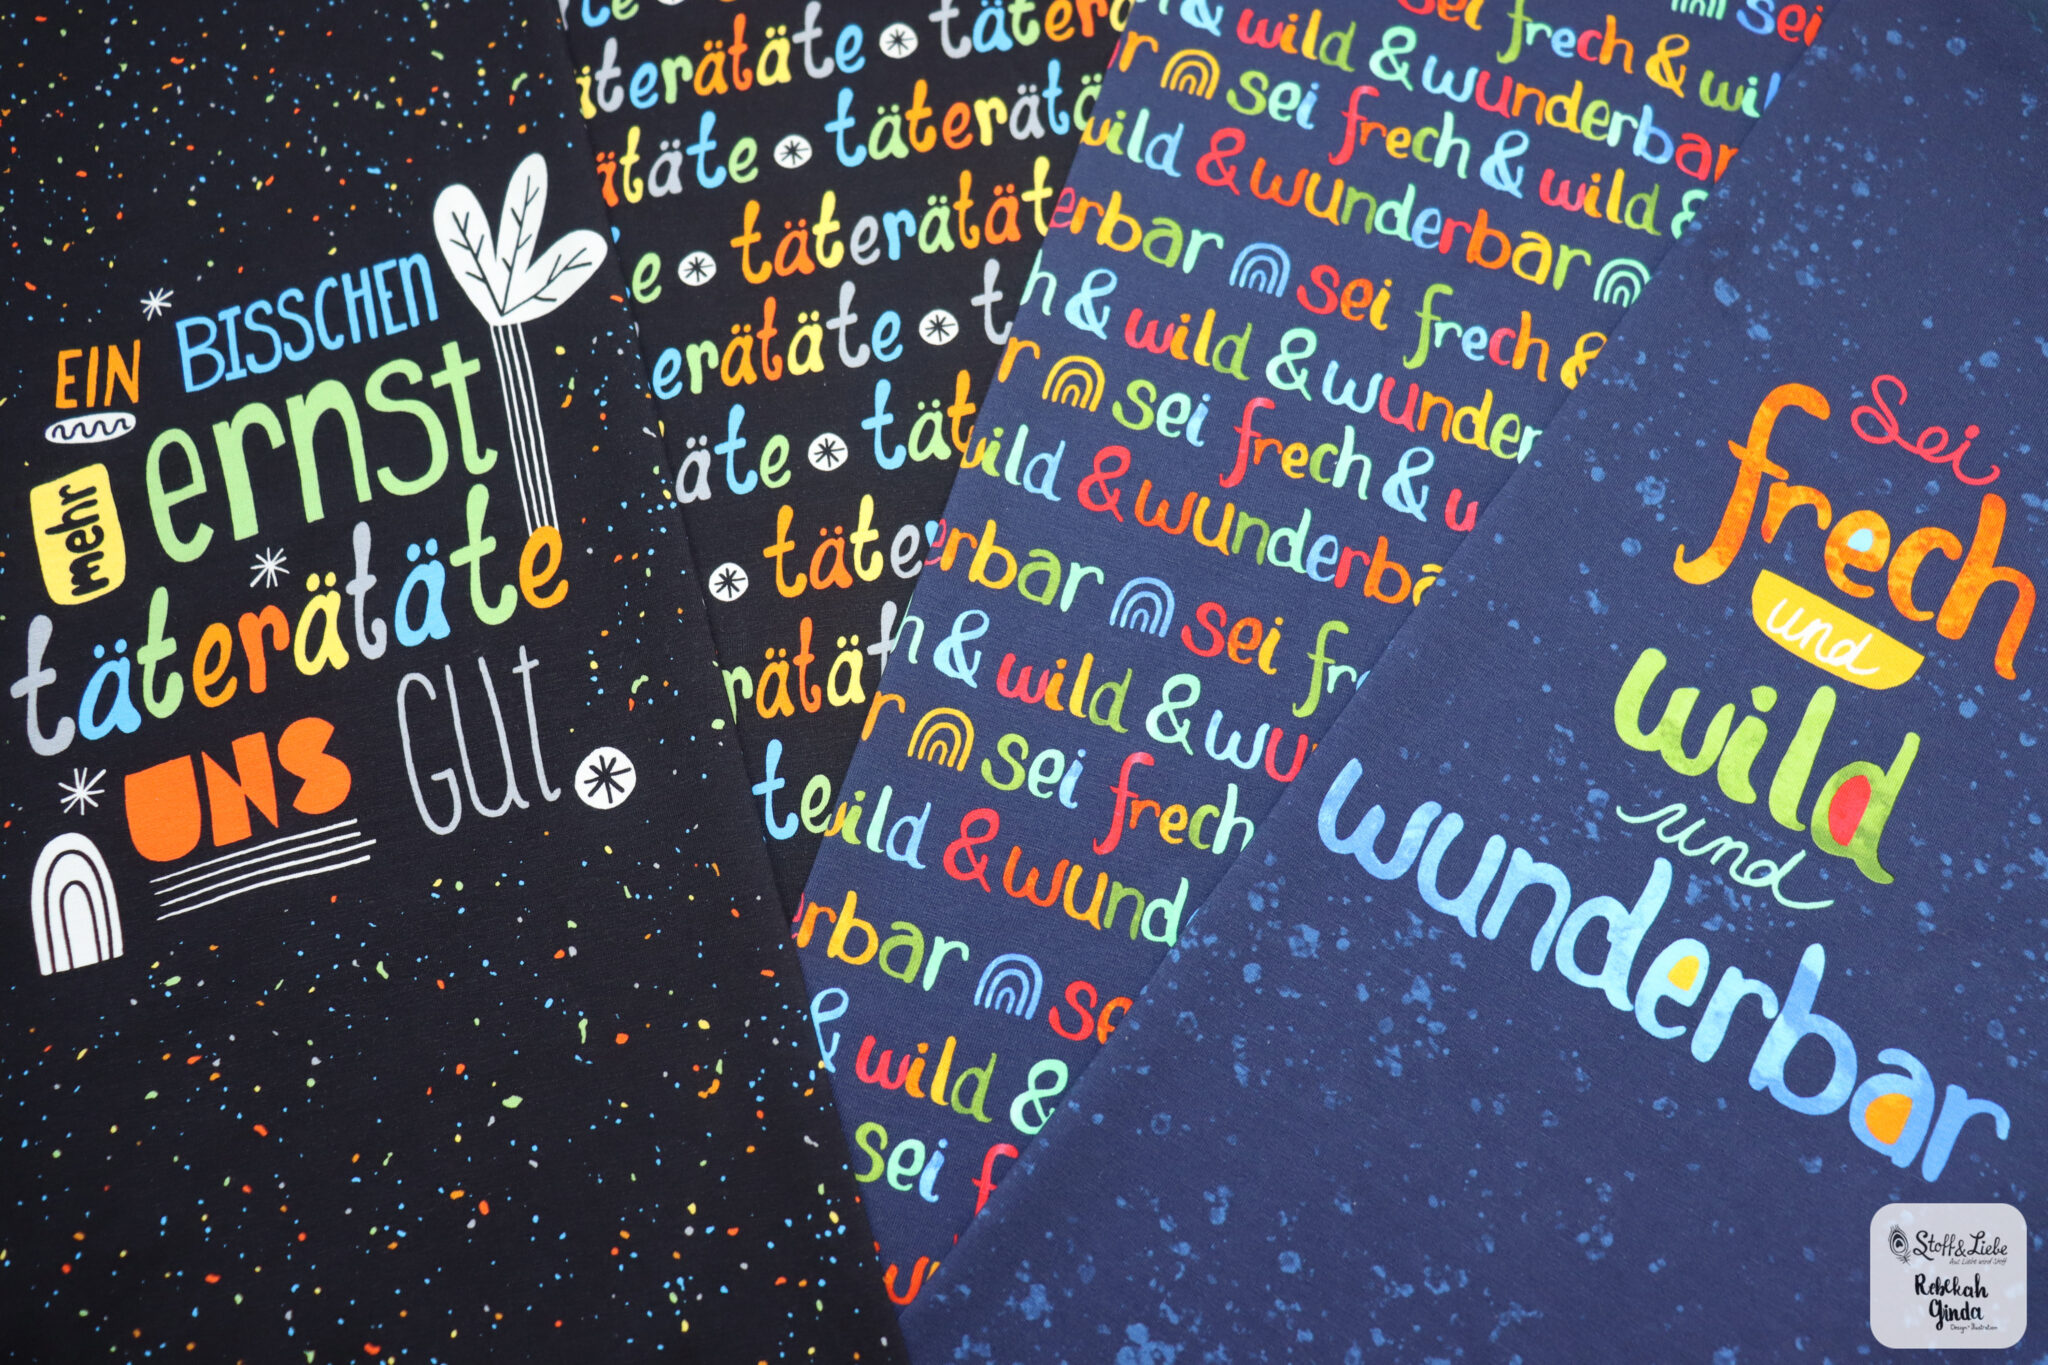 EIN BISSCHEN
mehr ernst
täterätäte
UNS GUT
te
täterätäte täter
tätäte täterätä
täterätät
e täterätät
erätäte t
äte tät
täte
rätät
te
sei frech & wil
& wild & wunderbar
sei frech & wild &
wild & wunderbar
erbar sei frech &
h & wild & wunder
r sei frech & w
wild & wunderba
erbar sei fr
h & wild & wu
r sei frech
wild & wund
rbar se
& wild &
sei f
sei
Sei
frech
und
wild
und
wunderbar
Stoff&Liebe
Aus Liebe wird Stoff
Rebekah
Ginda
Design + Illustration